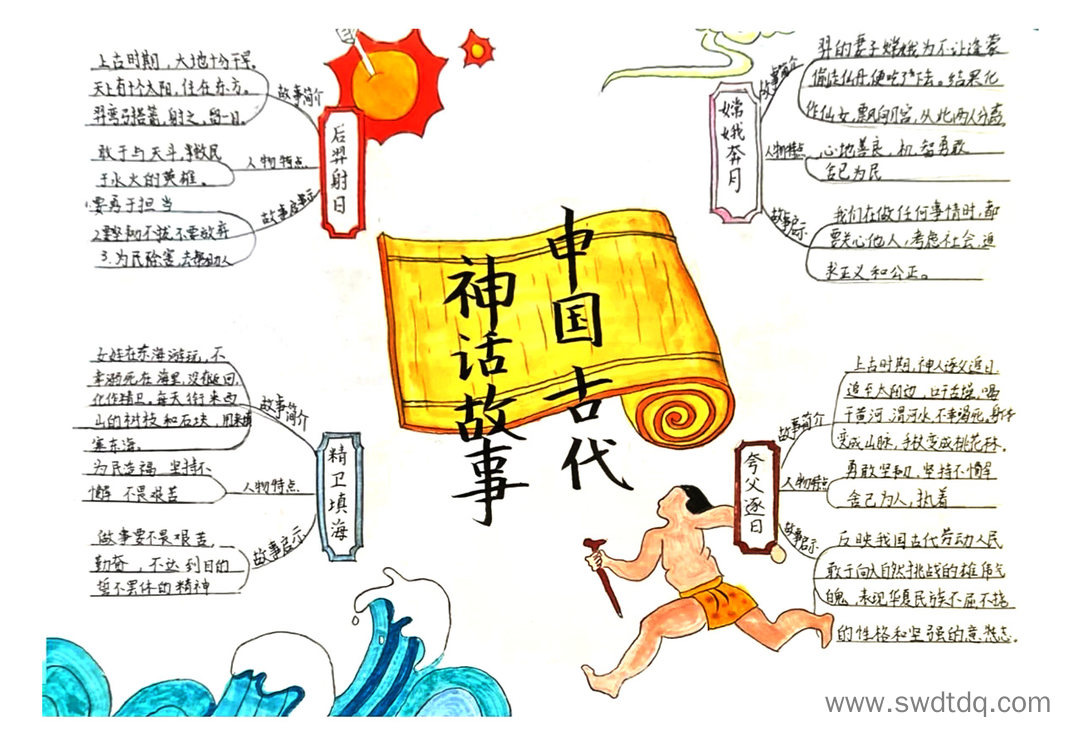 中国古代
神话故事
后羿射日
故事简介
上古时期，大地十分干旱。
天上有十个太阳，住在东方。
羿弯弓搭箭，射之，留一日。
人物特点
敢于与天斗，拿救民
于水火的英雄。
故事启示
1.要勇于担当
2.要坚韧不拔，不要放弃
3.为民除害，去帮助人
嫦娥奔月
故事简介
羿的妻子嫦娥为不让逢蒙
偷走仙丹，便吃了下去。结果化
作仙女，飘向月宫，从此两人分离
人物特点
心地善良，机智勇敢
舍己为民
故事启示
我们在做任何事情时，都
要关心他人，考虑社会，追
求正义和公正。
精卫填海
故事简介
女娃在东海游玩，不
幸溺死在海里，没有返回，
化作精卫，每天衔来西
山的树枝和石块，用来填
塞东海。
人物特点
为民造福 坚持不
懈 不畏艰苦
故事启示
做事要不畏艰苦，
勤奋，不达到目的
誓不罢休的精神
夸父逐日
故事简介
上古时期，神人逐义追日
追至太阳边，口干舌燥，喝
干黄河、渭河水，不幸渴死。身体
变成山脉，手杖变成桃花林。
人物特点
勇敢坚韧，坚持不懈
舍己为人，执着
故事启示
反映我国古代劳动人民
敢于向大自然挑战的雄伟气
魄，表现华夏民族不屈不挠
的性格和坚强的意志。
www.swdtdq.com